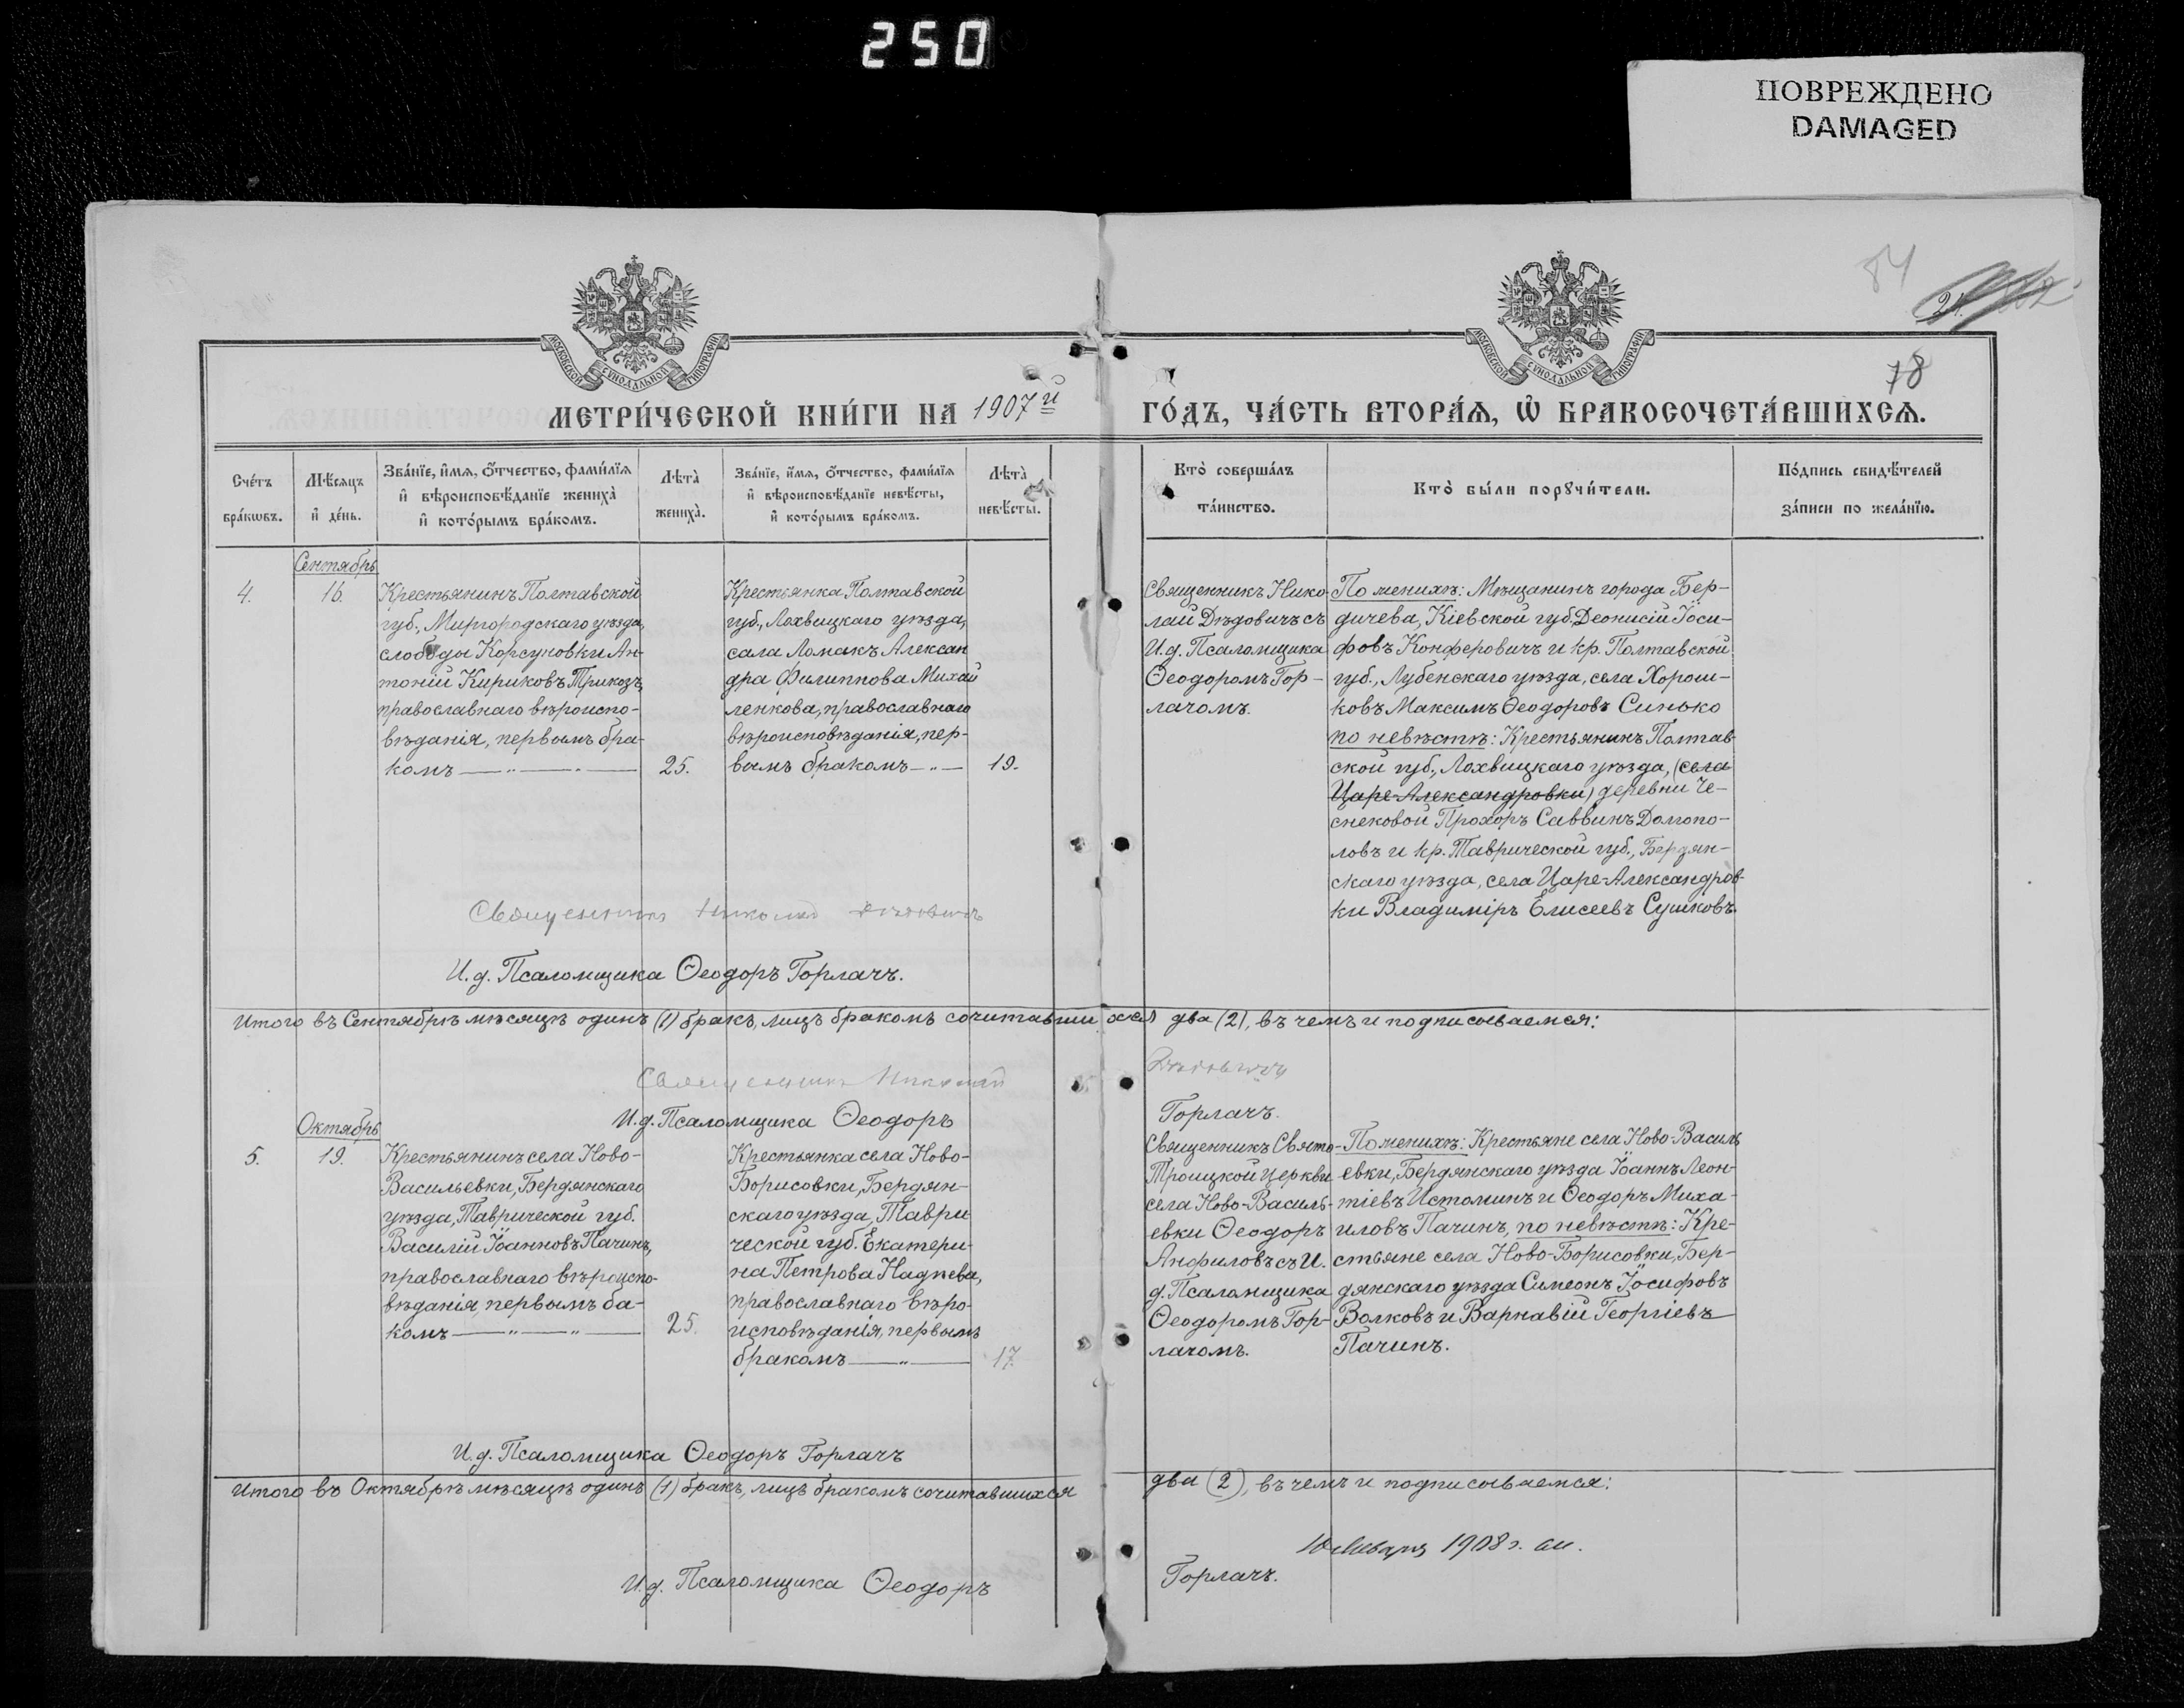 250
ПОВРЕЖДЕНО
DAMAGED
84
78
МОСКОВСКОЙ СѴНОДАЛЬНОЙ ТИПОГРАФІИ
МОСКОВСКОЙ СѴНОДАЛЬНОЙ ТИПОГРАФІИ
МЕТРИ́ЧЕСКОЙ КНИ́ГИ НА 1907й ГО́ДЪ, ЧА́СТЬ ВТОРА́Ѧ, Ѽ БРАКОСОЧЕТА́ВШИХСѦ.
Сче́тъ
бра́кωвъ.
Мѣ́сяцъ
и҆ де́нь.
Зва́нїе, и҆́мѧ, ѻ҆́тчество, фами́лїѧ
и҆ вѣроисповѣ́данїе жениха̀
и҆ кото́рымъ бра́комъ.
Лѣта̀
жениха̀.
Зва́нїе, и҆́мѧ, ѻ҆́тчество, фами́лїѧ
и҆ вѣроисповѣ́данїе невѣ́сты,
и҆ кото́рымъ бра́комъ.
Лѣта̀
невѣ́сты.
Кто̀ соверша́лъ
та́инство.
Кто̀ бы́ли порꙋчи́тели.
По́дпись свидѣ́телей
за́писи по жела́нїю.
Сентябрь
4.
16.
Крестьянинъ Полтавской
губ., Миргородскаго уѣзда,
слободы Корсуновки Ан-
тоній Кириковъ Трикозъ,
православнаго вѣроиспо-
вѣданія, первымъ бра-
комъ
25.
Крестьянка Полтавской
губ., Лохвицкаго уѣзда,
села Ломакъ Алексан
дра Филиппова Михай
ленкова, православнаго
вѣроисповѣданія, пер-
вымъ бракомъ
19.
Священникъ Нико-
лай Дѣдовичъ съ
И.д. Псаломщика
Ѳеодоромъ Гор-
лачомъ.
По женихѣ: Мѣщанинъ города Бер-
дичева, Кіевской губ. Деонисій Іоси-
фовъ Конферовичъ и кр. Полтавской
губ., Лубенскаго уѣзда, села Хорош-
ковъ Максимъ Ѳеодоровъ Синько
по невѣстѣ: Крестьянинъ Полтав-
ской губ., Лохвицкаго уѣзда, (села
Царе-Александровки) деревни Че-
снековой Прохоръ Саввинъ Долгопо-
ловъ и кр. Таврической губ., Бердян-
скаго уѣзда, села Царе-Александров-
ки Владиміръ Елисеевъ Сушковъ.
Священникъ Николай Дѣдовичъ
И.д. Псаломщика Ѳеодоръ Горлачъ.
Итого въ Сентябрѣ мѣсяцѣ одинъ (1) бракъ, лицъ бракомъ сочитавшихся два (2), въ чемъ и подписываемся:
Священникъ Николай Дѣдовичъ
И.д. Псаломщика Ѳеодоръ Горлачъ.
Октябрь
5.
19.
Крестьянинъ села Ново-
Васильевки, Бердянскаго
уѣзда, Таврической губ.
Василій Іоанновъ Пачинъ,
православнаго вѣроиспо-
вѣданія, первымъ ба-
комъ
25.
Крестьянка села Ново-
Борисовки, Бердян-
скаго уѣзда, Таври
ческой губ. Екатери-
на Петрова Наднева,
православнаго вѣро-
исповѣданія, первымъ
бракомъ
17.
Священникъ Свято-
Троицкой церкви
села Ново-Василь-
евки Ѳеодоръ
Анфиловъ съ И.
д. Псаломщика
Ѳеодоромъ Гор-
лачомъ.
По женихѣ: Крестьяне села Ново-Василь
евки, Бердянскаго уѣзда Іоаннъ Леон-
тіевъ Истоминъ и Ѳеодоръ Миха-
иловъ Пачинъ, по невѣстѣ: Кре-
стьяне села Ново-Борисовки, Бер-
дянскаго уѣзда Симеонъ Іосифовъ
Волковъ и Варнавій Георгіевъ
Пачинъ.
И.д. Псаломщика Ѳеодоръ Горлачъ
Итого въ Октябрѣ мѣсяцѣ одинъ (1) бракъ, лицъ бракомъ сочитавшихся два (2), въ чемъ и подписываемся:
Января 1908 г.
И.д. Псаломщика Ѳеодоръ Горлачъ.